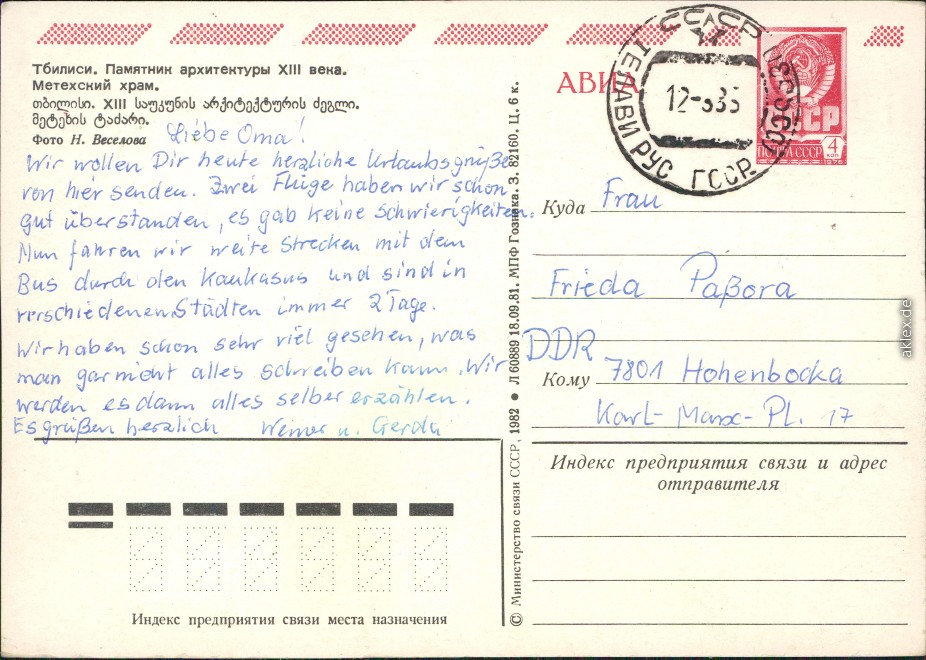 Тбилиси. Памятник архитектуры XIII века.
Метехский храм.
თბილისი. XIII საუკუნის არქიტექტურის ძეგლი.
მეტეხის ტაძარი.
Фото Н. Веселова
Liebe Oma!
Wir wollen Dir heute herzliche Urlaubsgrüße
von hier senden. Zwei Flüge haben wir schon
gut überstanden, es gab keine Schwierigkeiten.
Nun fahren wir weite Strecken mit dem
Bus durch den Kaukasus und sind in
verschiedenen Städten immer 2 Tage.
Wir haben schon sehr viel gesehen, was
man garnicht alles schreiben kann. Wir
werden es dann alles selber erzählen.
Es grüßen herzlich Werner u. Gerda
Индекс предприятия связи места назначения
© Министерство связи СССР, 1982 ● Л 60889 18.09.81. МПФ Гознака. З. 82160. Ц. 6 к.
АВИА
СССР
ТЕЛАВИ ГРУС ГССР
ПОЧТА СССР
4
КОП
1976
Куда Frau
Frieda Paßora
DDR
Кому 7801 Hohenbocka
Karl-Marx-Pl. 17
Индекс предприятия связи и адрес
отправителя
aklex.de